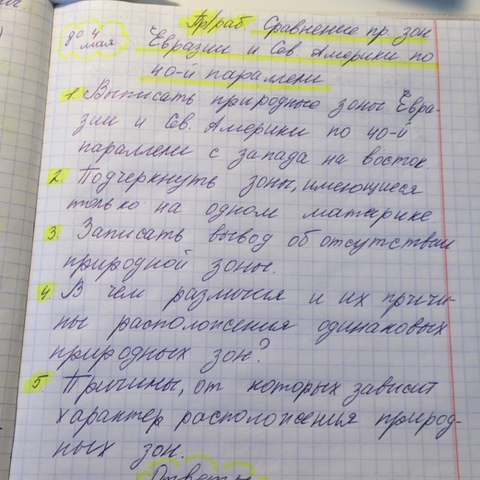 Пр/раб. Сравнение пр. зон
до 4 мая
Евразии и Сев Америки по
40-й параллели
1. Выписать природные зоны Евра-
зии и Сев. Америки по 40-й
параллели с запада на восток.
2. Подчеркнуть зоны, имеющиеся
только на одном материке
3. Записать вывод об отсутствии
природной зоны.
4. В чем различия и их причи-
ны расположения одинаковых
природных зон?
5. Причины, от которых зависит
характер расположения природ-
ных зон.
Ответы